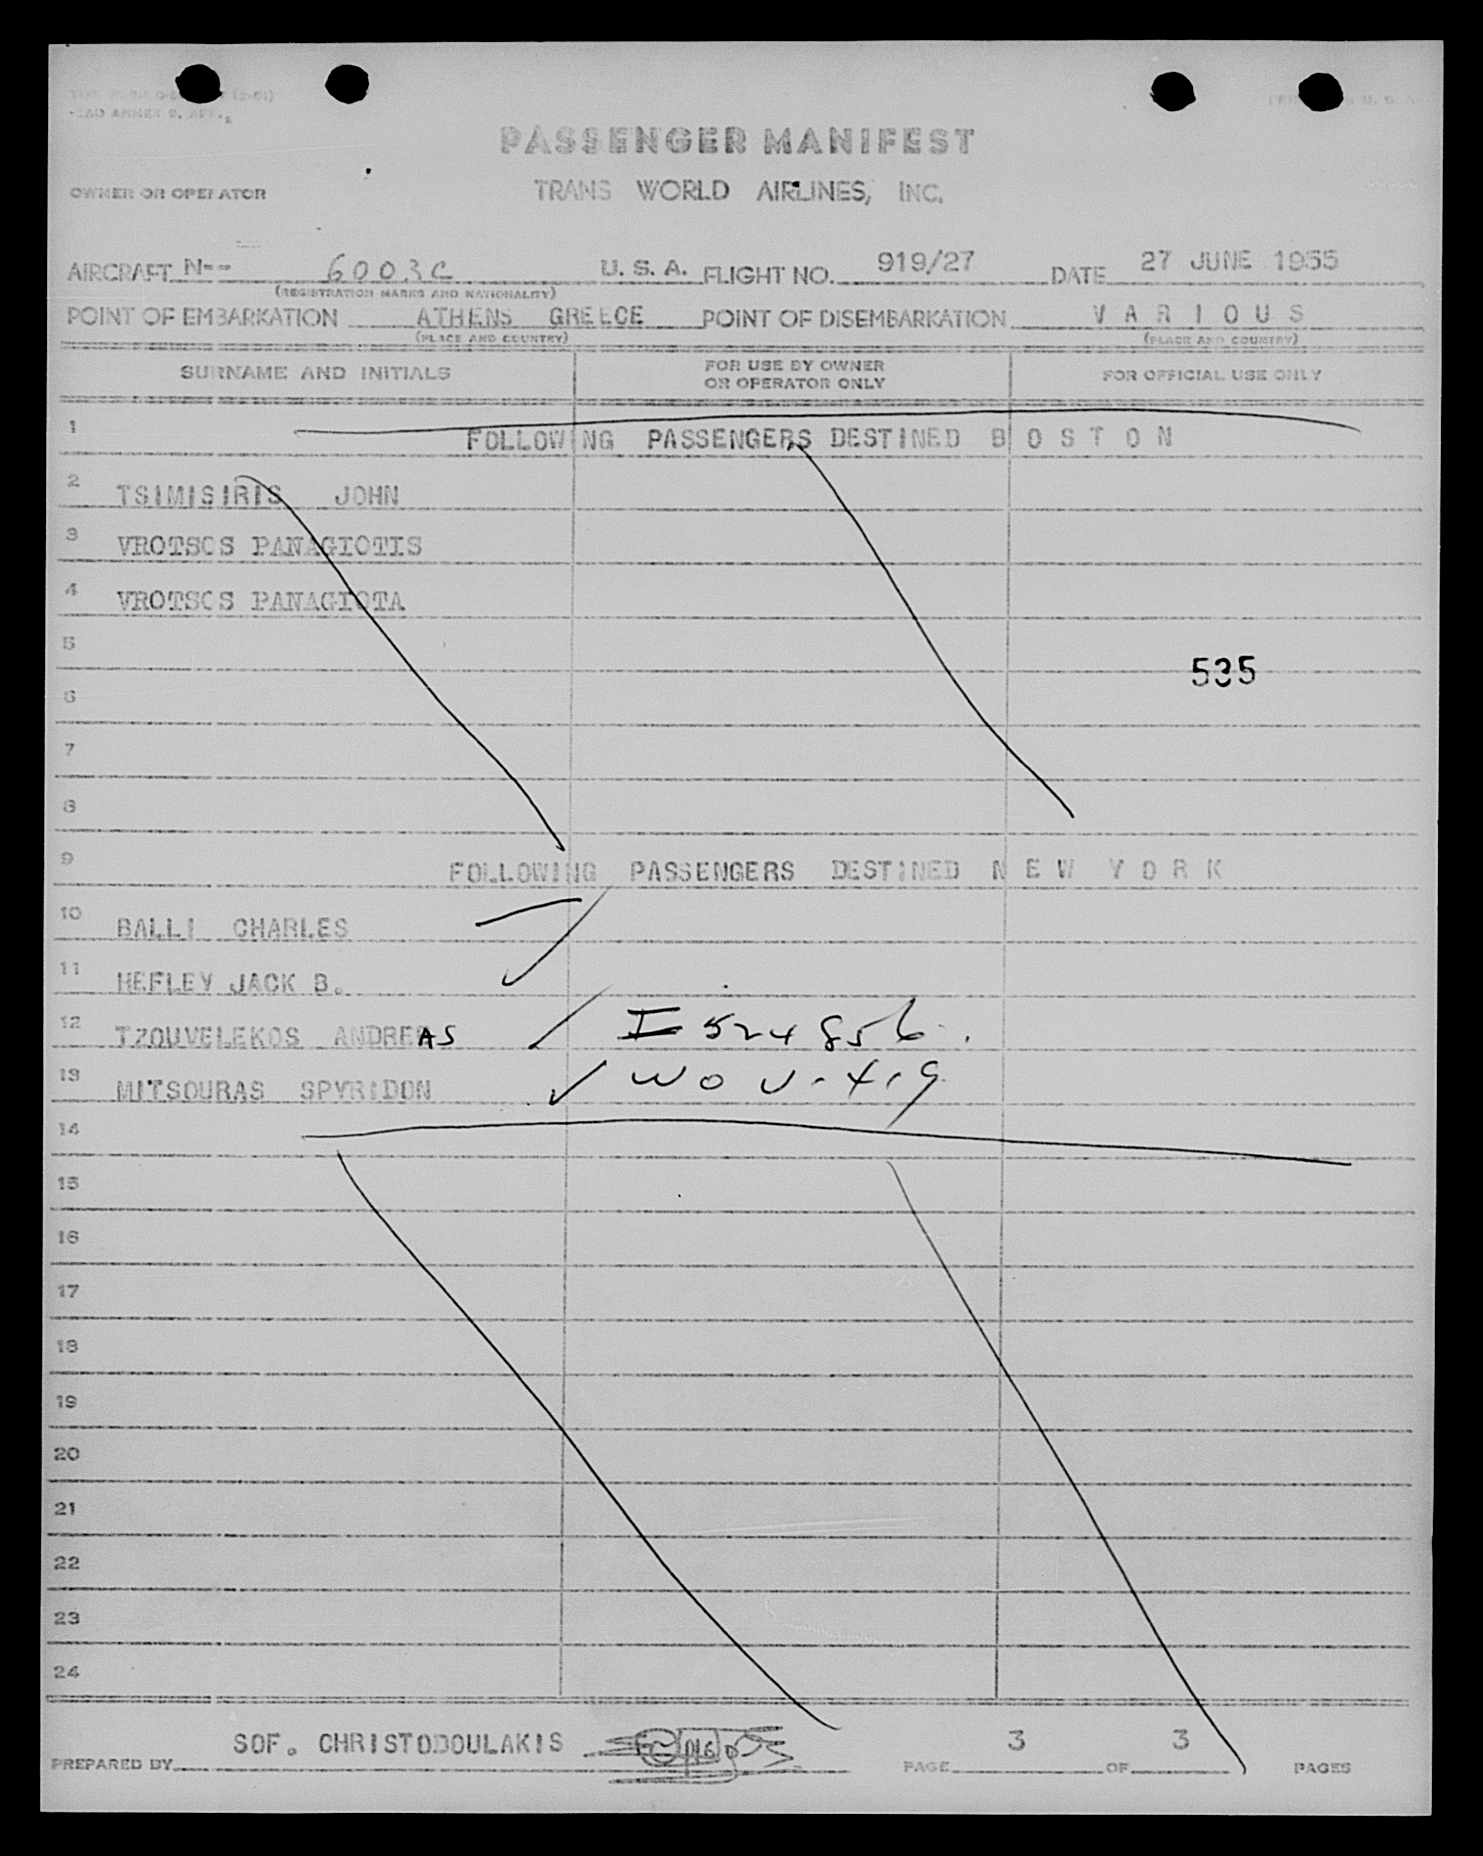 PASSENGER MANIFEST
OWNER OR OPERATOR TRANS WORLD AIRLINES, INC.
AIRCRAFT N-- 6003C U. S. A. FLIGHT NO. 919/27 DATE 27 JUNE 1955
(REGISTRATION MARKS AND NATIONALITY)
POINT OF EMBARKATION ATHENS GREECE POINT OF DISEMBARKATION VARIOUS
(PLACE AND COUNTRY) (PLACE AND COUNTRY)
SURNAME AND INITIALS FOR USE BY OWNER OR OPERATOR ONLY FOR OFFICIAL USE ONLY
1 FOLLOWING PASSENGERS DESTINED BOSTON
2 TSIMISIRIS JOHN
3 VROTSOS PANAGIOTIS
4 VROTSOS PANAGIOTA
5
535
6
7
8
9 FOLLOWING PASSENGERS DESTINED NEW YORK
10 BALLI CHARLES
11 HEFLEY JACK B.
12 TZOUVELEKOS ANDREAS I 524856.
13 MITSOURAS SPYRIDON
14
15
16
17
18
19
20
21
22
23
24
PREPARED BY SOF. CHRISTODOULAKIS PAGE 3 OF 3 PAGES